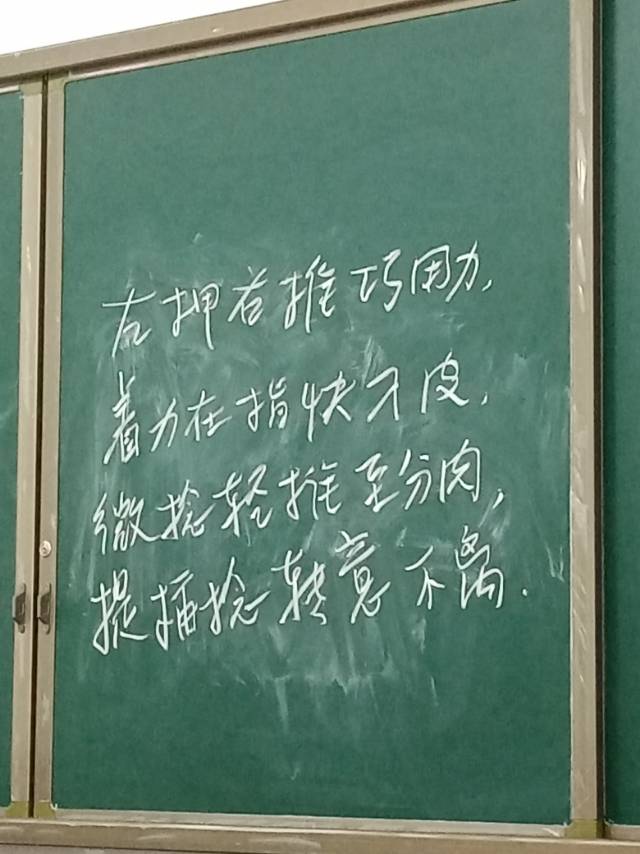 左押右推巧用力,
着力在指快刀皮,
微捻轻推至分肉,
提插捻转意不离.